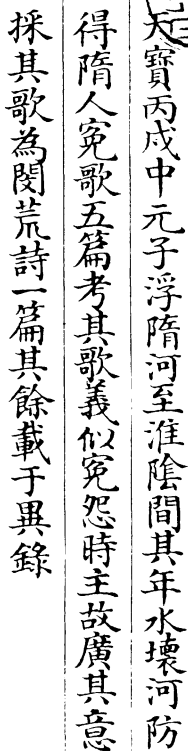 天寶丙戍中元子浮隋河至淮陰間其年水壞河防
得隋人寃歌五篇考其歌義似寃怨時主故廣其意
採其歌為閔荒詩一篇其餘載于異錄